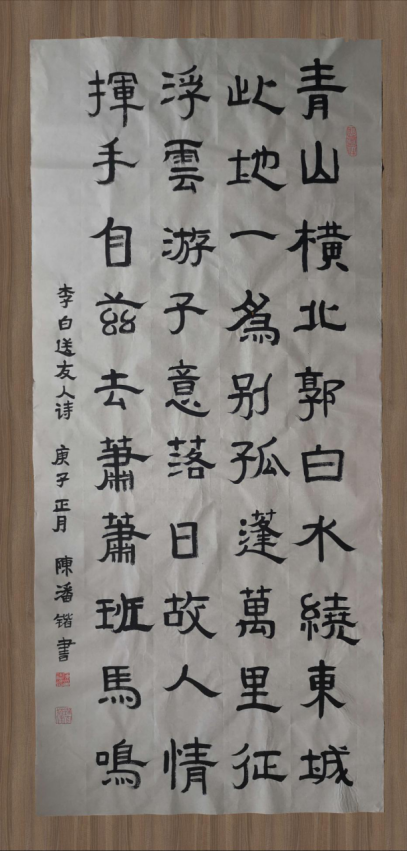 青山横北郭白水繞東城
此地一為别孤蓬萬里征
浮雲游子意落日故人情
揮手自兹去蕭蕭班馬鳴
李白送友人诗 庚子正月 陳潘锴書